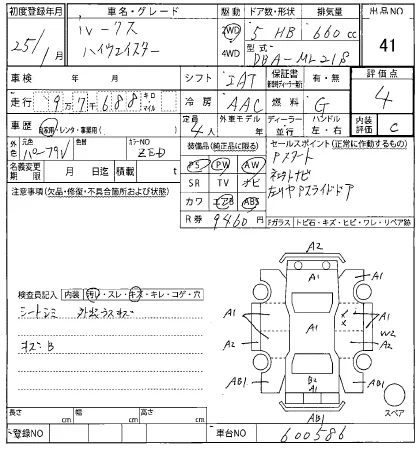 初度登録年月 車名・グレード 駆動 ドア数・形状 排気量 出品NO
25/1月 ルークス 2WD 5 HB 660cc 41
ハイウェイスター 4WD 型式 DBA-ML21S
車検 年 月 シフト IAT 保証書 有・無 評価点
走行 9万7千688 キロ マイル 冷房 AAC 燃料 G 4
車歴 自家用・レンタ・事業用( ) 定員 4人 外車モデル 年 ディーラー 並行 ハンドル 左・右 内装評価 C
元色 色替 カラーNO ZED
装備品(純正品に限る) セールスポイント(正常に作動するもの)
名義変更期限 月 日迄 積載 t
PS PW AW Pスタート
注意事項(欠品・修復・不具合箇所および状態)
SR TV ナビ
カワ エアB ABS
R券 9460円
Fガラス トビ石・キズ・ヒビ・ワレ・リペア跡
検査員記入 内装 汚レ・スレ・キズ・キレ・コゲ・穴
シートシミ
キズB
A2
A1 A1
A1 A1
A1 A1
A2 A2 W2
AB1 B2 A1 AB1
AB1
スペア
長さ cm 幅 cm 高さ cm
登録NO 車台NO 600586